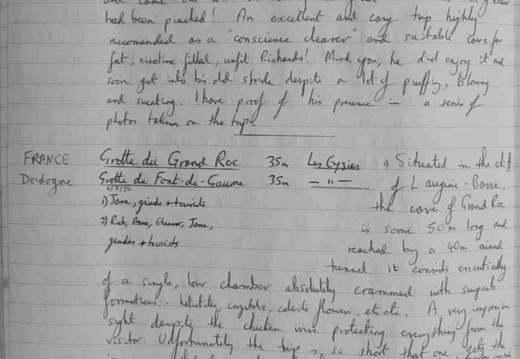 had been pinched! An excellent and cosy trip highly
recommended as a "conscience cleaner" and suitable cave for
fat, nicotine-filled, unfit Richards! Mind you, he did enjoy it and
soon got into his old stride despite a lot of puffing, blowing
and sweating. I have proof of his presence in a series of
photos taken on the trip.
FRANCE Grotte du Grand Roc 35m Les Eyzies 1) Situated in the cliff
Dordogne Grotte de Font-de-Gaume 35m — " — of Laugerie-Basse,
1) Jane, guide + tourists the cave of Grand Roc
2) Rich, Anne, Eleanor, Jane, is some 50m long and
guides + tourists reached by a 40m mined
tunnel. It consists essentially
of a single, low chamber absolutely crammed with superb
formations:- helictites, crystals, calcite flowers etc etc. A very impressive
sight despite the chicken wire protecting everything from the
visitor. Unfortunately the trip is so short that one gets the